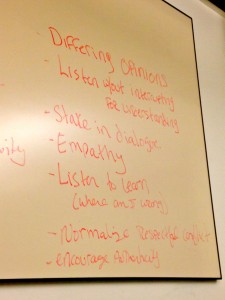 Differing Opinions
- Listen w/out interrupting
for understanding
- State in dialogue.
- Empathy
- Listen to learn
(where am I wrong)
- Normalize respectful conflict
- encourage Authenticity